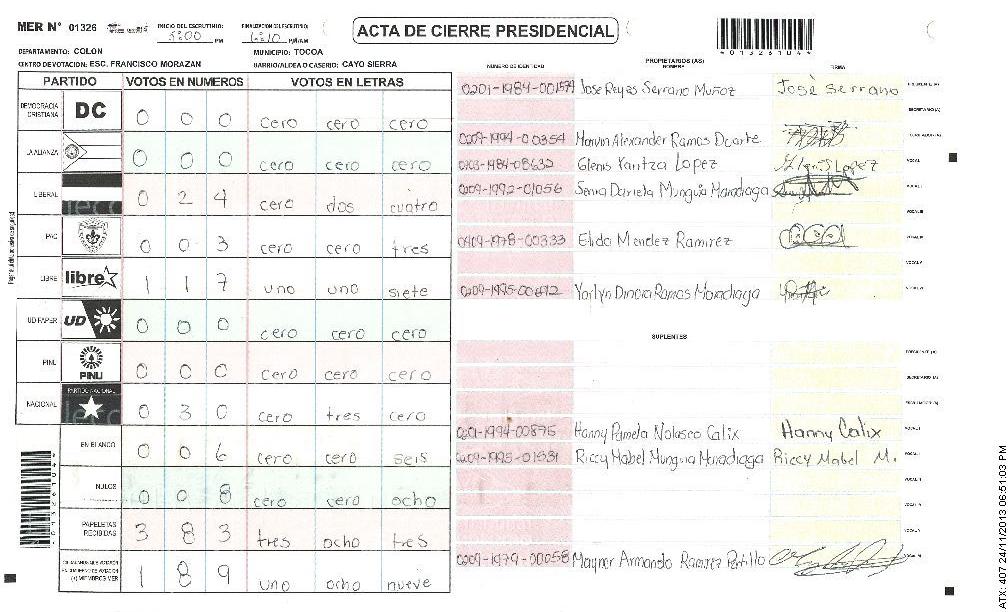 MER N° 01326 INICIO DEL ESCRUTINIO: 5:00 PM FINALIZACION DEL ESCRUTINIO: 6:10 PM/AM ACTA DE CIERRE PRESIDENCIAL
DEPARTAMENTO: COLON MUNICIPIO: TOCOA
CENTRO DE VOTACION: ESC. FRANCISCO MORAZAN BARRIO/ALDEA O CASERIO: CAYO SIERRA
PARTIDO VOTOS EN NUMEROS VOTOS EN LETRAS
DEMOCRACIA CRISTIANA DC 0 0 0 cero cero cero
LA ALIANZA 0 0 0 cero cero cero
LIBERAL 0 2 4 cero dos cuatro
PAC 0 0 3 cero cero tres
LIBRE libre 1 1 7 uno uno siete
UD FAPER UD 0 0 0 cero cero cero
PINU PINU 0 0 0 cero cero cero
NACIONAL PARTIDO NACIONAL 0 3 0 cero tres cero
EN BLANCO 0 0 6 cero cero seis
NULOS 0 0 8 cero cero ocho
PAPELETAS RECIBIDAS 3 8 3 tres ocho tres
(+) MIEMBROS MER 1 8 9 uno ocho nueve
NUMERO DE IDENTIDAD PROPIETARIOS (AS) NOMBRE FIRMA
0201-1984-001574 Jose Reyes Serrano Muñoz José Serrano PRESIDENTE (A)
SECRETARIO (A)
0209-1994-00354 Marvin Alexander Ramos Duarte ESCRUTADOR (A)
0203-1984-08632 Glenis Yaritza Lopez VOCAL I
0209-1992-01056 Senia Dariela Munguia Maradiaga
0409-1978-00333 Elida Mendez Ramirez
0209-1995-00692 Yorlyn Dinora Ramos Maradiaga
SUPLENTES
PRESIDENTE (A)
SECRETARIO (A)
ESCRUTADOR (A)
0201-1994-00875 Hanny Pamela Nolasco Calix Hanny Calix
0209-1995-01531 Riccy Mabel Munguia Maradiaga Riccy Mabel M.
0209-1979-00058 Mayner Armando Ramirez Portillo
0 1 3 2 6 1 0 4
ATX: 407 24/11/2013 06:51:03 PM